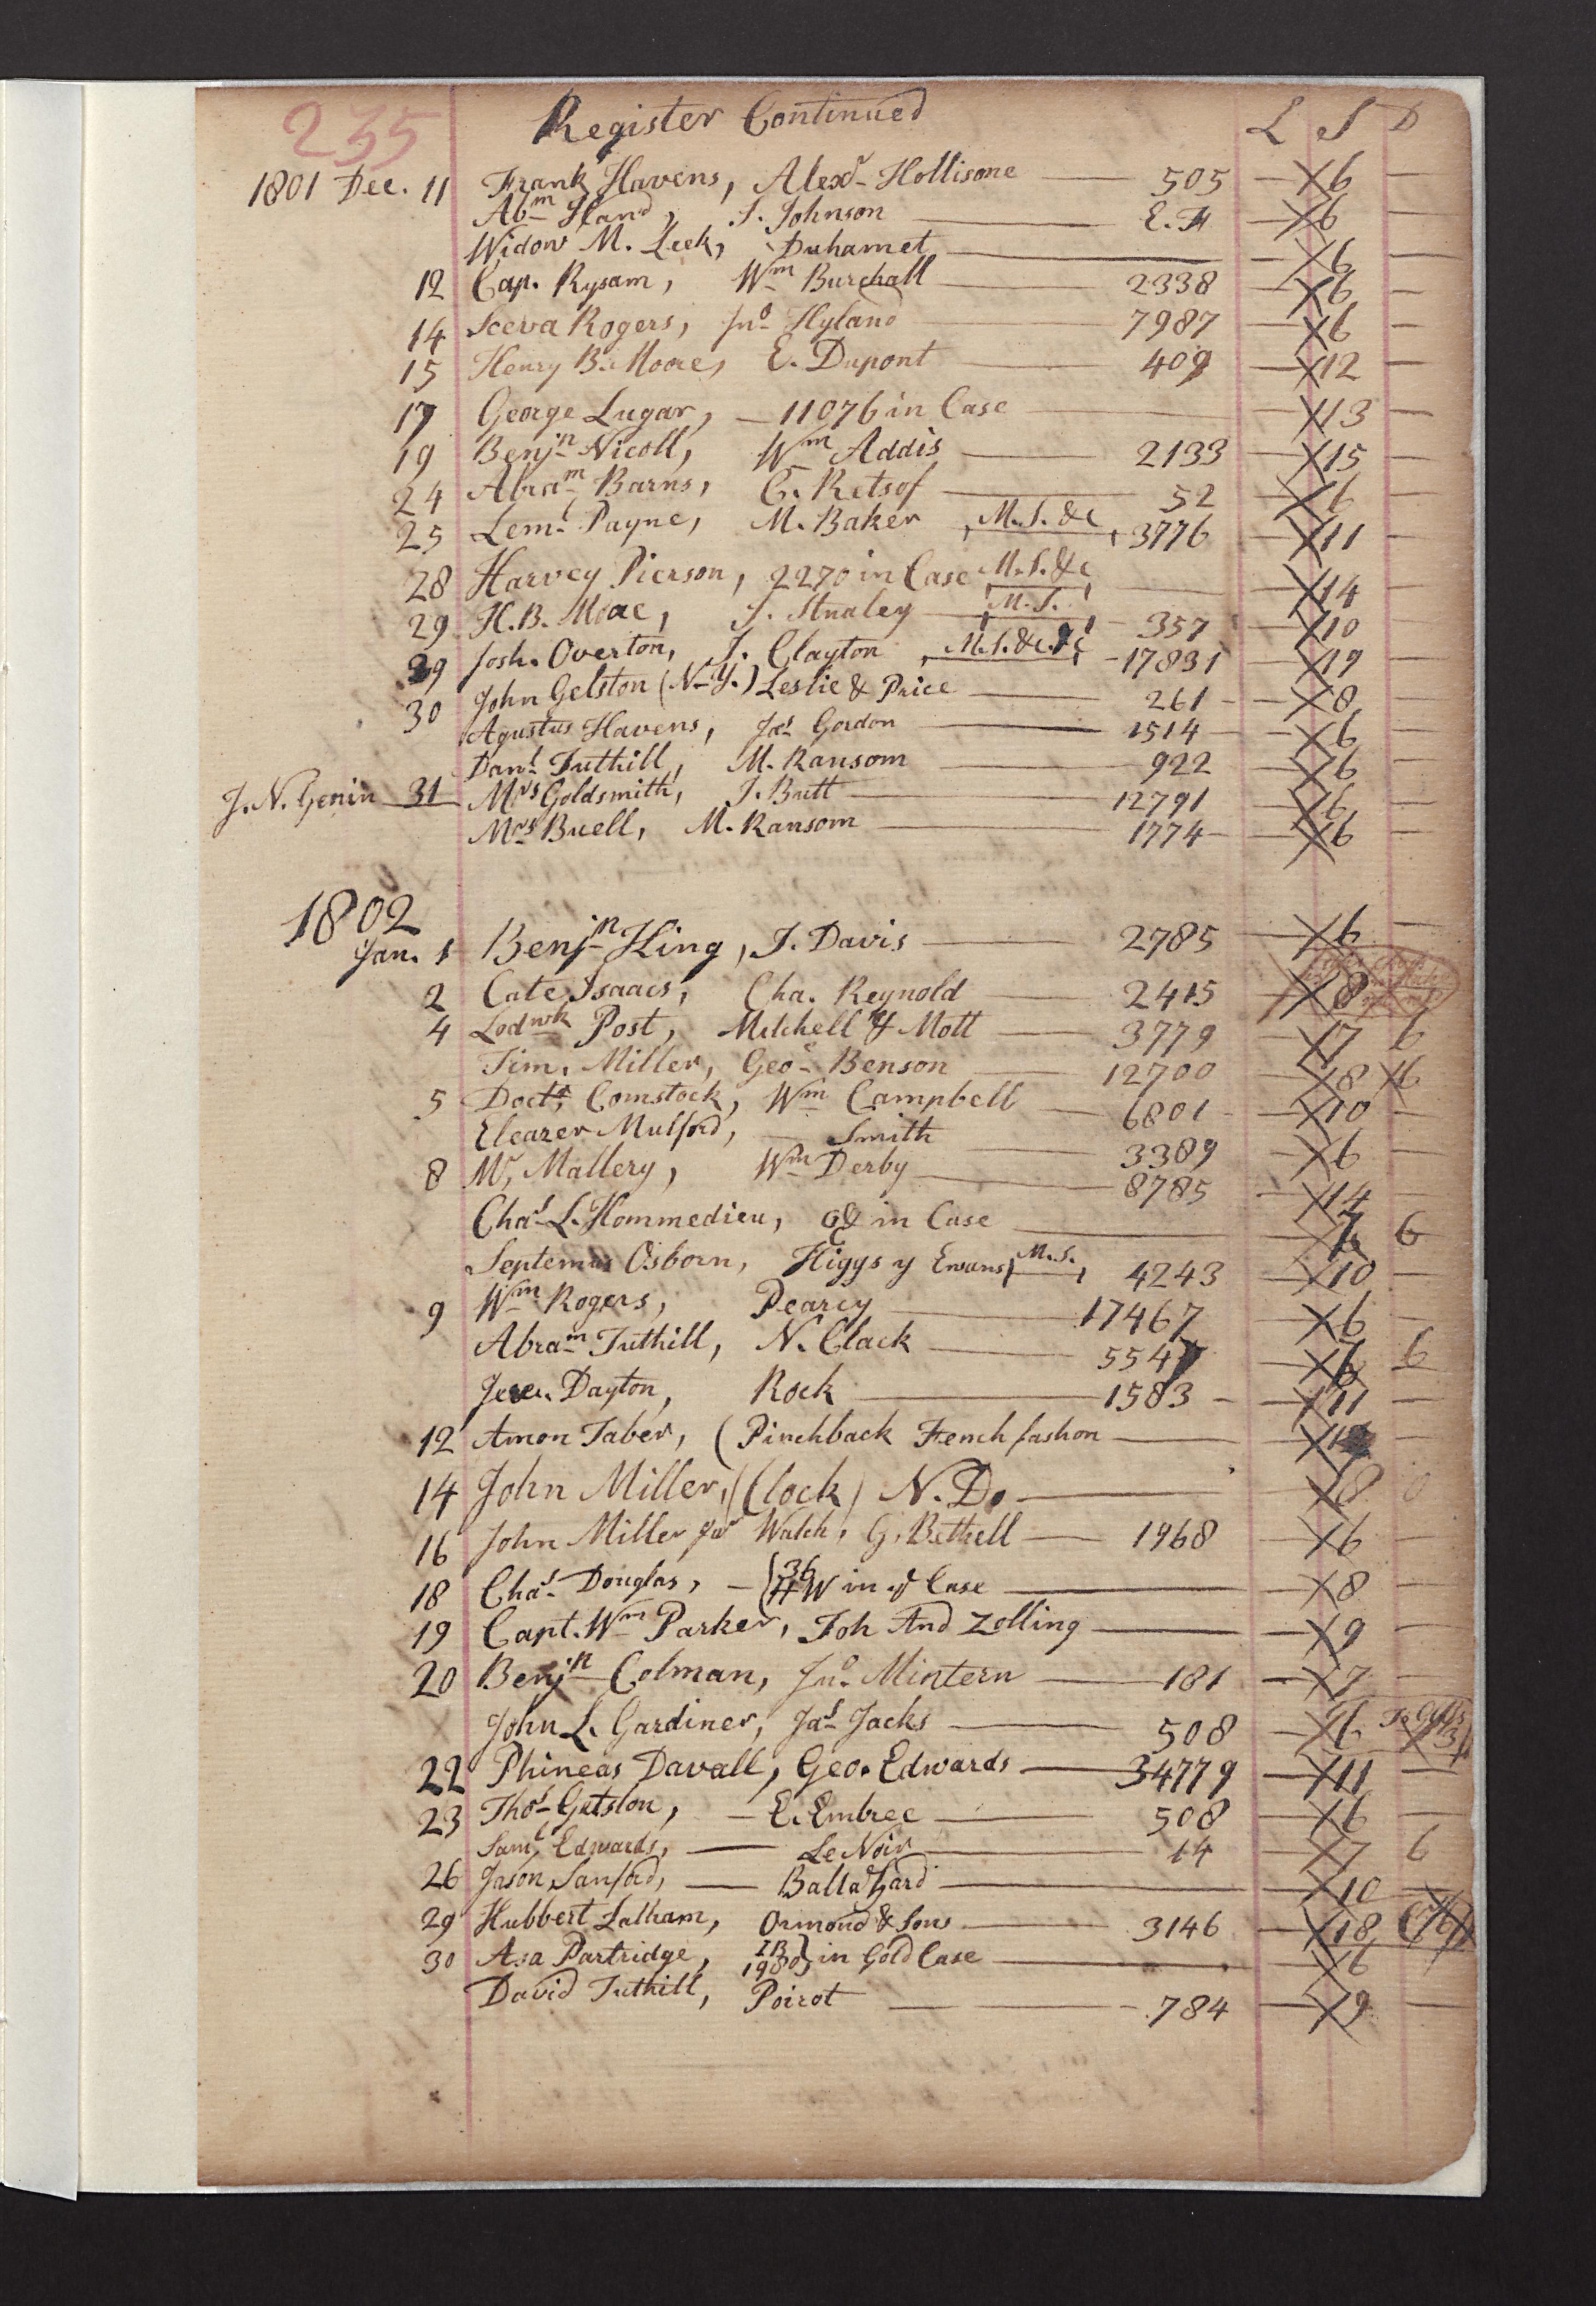 235 Register Continued L S D
1801 Dec. 11 Frank Havens, Alexr Hollisone 505 6
Abm Hand, J. Johnson E. F 6
Widow M. Leek, Duhamet 6
12 Cap. Rysam, Wm Burchall 2338 6
14 Sceva Rogers, Jno Hyland 7987 6
15 Henry B. Moore, E. Dupont 409 12
17 George Lugar, 11076 in Case 13
19 Benjn Nicoll, Wm Addis 2133 15
24 Abram Barns, G. Retsof 52 6
25 Leml Payne, M. Baker M.S.&c 3776 11
28 Harvey Pierson, 2270 in Case M.S.&c 14
29 H.B. J. M.S. 357 10
29 Josh. Overton, J. Clayton M.S.&c.&c 17831 19
30 John Gelston (N-Y.) Leslie & Price 261 8
Agustus Havens, Jas Gordon 1514 6
Danl Tuthill, M. Ransom 922 6
J. N. Genin 31 Mrs Goldsmith, J. Britt 12791 6
Mrs Buell, M. Ransom 1774 6
1802
Jan. 1 Benjn King, J. Davis 2785 6
2 Cate Isaacs, Cha. Reynold 2415 8
4 Lodwk Post, Mitchell & Mott 3779 17 6
Tim. Miller, Geo Benson 12700 8 6
5 Doctr Comstock, Wm Campbell 6801 10
Eleazer Mulford, Smith 3389 6
8 Mr Mallery, Wm Derby 8785 14
Chas L. Hommedieu, in Case 7 6
Septemus Osborn, Higgs y Evans M.S. 4243 10
9 Wm Rogers, Pearcy 17467 6
Abram Tuthill, N. Clack 5547 6
Dayton, Rock 1583 11
12 Amon Taber, (Pinchback Fench fashon
14 John Miller, (Clock) N. D. 8
16 John Miller Jur Watch, G. Bethell 1968 6
18 Chas Douglas, 36 HW in of Case 8
19 Capt. Wm Parker, Joh And Zolling 9
20 Benjn Colman, Jno Mintern 181 7
John L. Gardiner, Jas Jacks 508 6
22 Phineas Davall, Geo. Edwards 34779 11
23 Thos Gelston, E. Embree 508 6
Saml Edwards, Le Noir 14 7 6
26 Jason Sanford, Ballathard 10
29 Hubbert Latham, Ormond & Sons 3146 18
30 Asa Partridge, IB 1980} in Gold Case 6
David Tuthill, Poirot 784 9